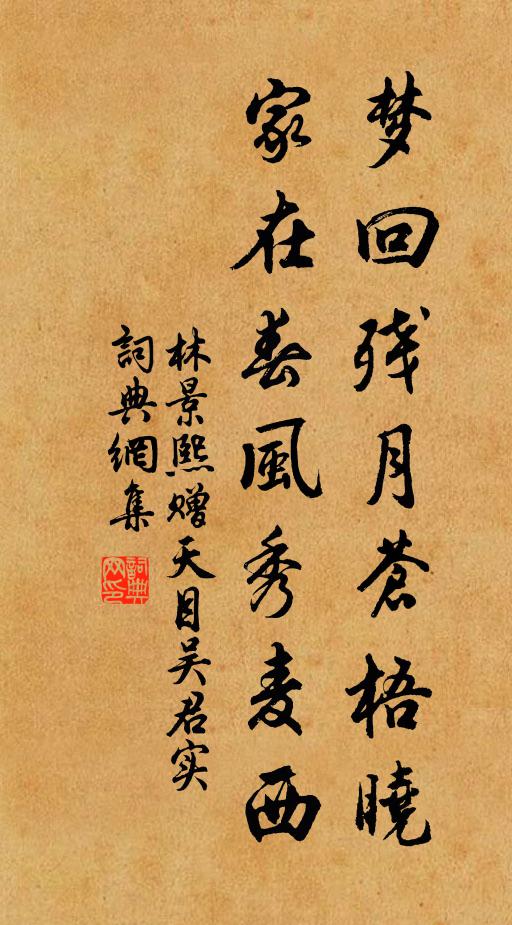 梦回残月苍梧晓
家在春風秀麦西
林景熙赠天目吴君实
詞典網集
詞典网印